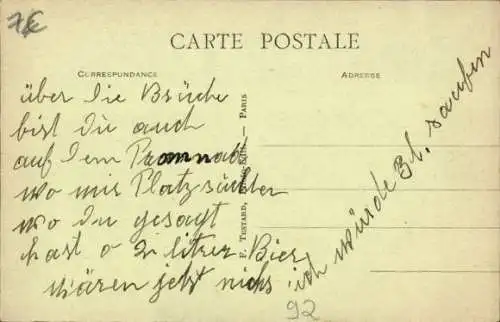 7€
CARTE POSTALE
CORRESPONDANCE
ADRESSE
über die Brücke
bist du auch
auf dem
wo mir Platz
wo du gesagt
hast o 2 litrer Bier
wären jetzt nichs ich würde 3l. saufen
92
F. TESTARD, — PARIS